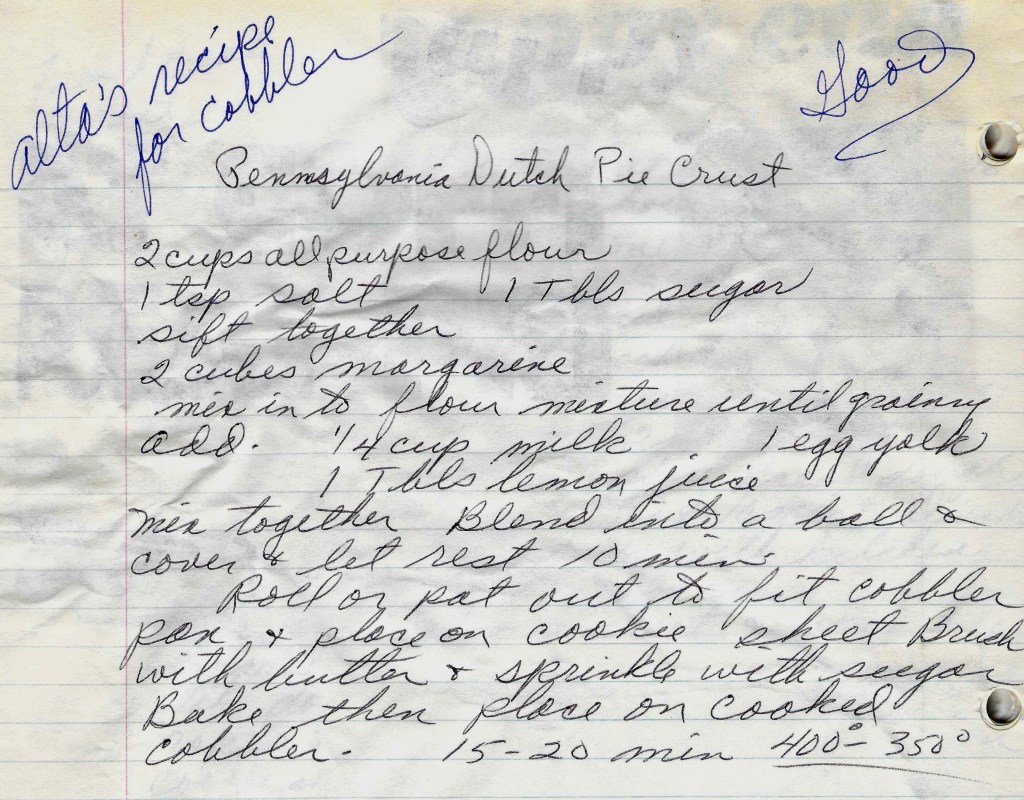 alta's recipe
for cobbler
Good
Pennsylvania Dutch Pie Crust
2 cups all purpose flour
1 tsp salt 1 Tbls sugar
sift together
2 cubes margarine
mix in to flour mixture until grainy
add. 1/4 cup milk 1 egg yolk
1 Tbls lemon juice
mix together Blend into a ball &
cover & let rest 10 min.
Roll or pat out to fit cobbler
pan & place on cookie sheet Brush
with butter & sprinkle with sugar
Bake then place on cooked
cobbler. 15-20 min 400°- 350°